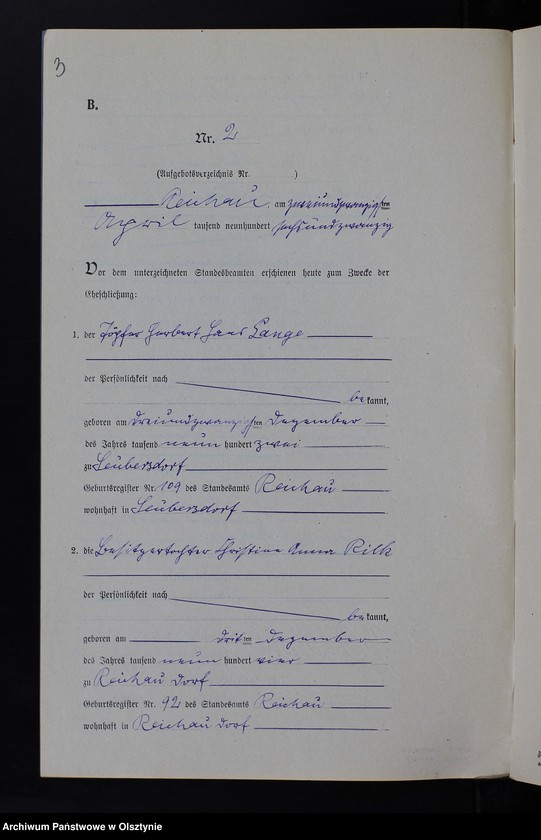 3
B.
Nr. 2
(Aufgebotsverzeichnis Nr. )
Reichau, am zweiundzwanzigsten
April tausend neunhundert sechsundzwanzig
Vor dem unterzeichneten Standesbeamten erschienen heute zum Zwecke der
Eheschließung:
1. der Töpfer Herbert Hans Lange
der Persönlichkeit nach
bekannt,
geboren am dreiundzwanzigsten Dezember
des Jahres tausend neunhundert zwei
zu Leubersdorf
Geburtsregister Nr. 109 des Standesamts Reichau
wohnhaft in Leubersdorf
2. die Besitzertochter Christine Anna Rilk
der Persönlichkeit nach
bekannt,
geboren am dritten Dezember
des Jahres tausend neunhundert vier
zu Reichau Dorf
Geburtsregister Nr. 92 des Standesamts Reichau
wohnhaft in Reichau Dorf
Archiwum Państwowe w Olsztynie